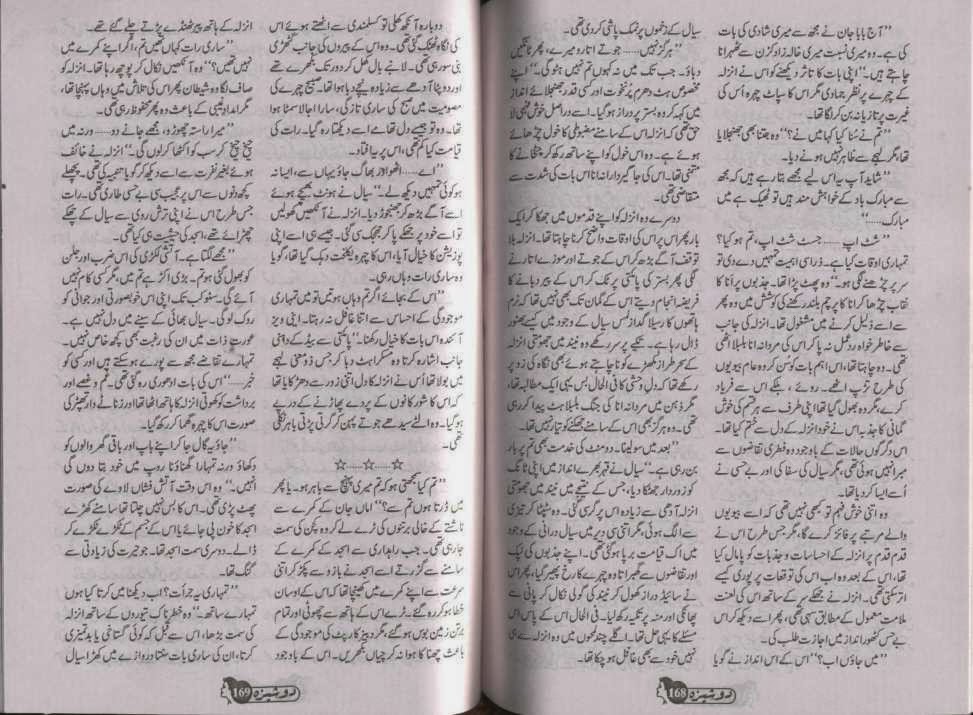 "آج بابا جان نے مجھ سے میری شادی کی بات
کی ہے۔ وہ میری نسبت میری خالہ زاد کزن سے ٹھہرانا
چاہتے ہیں۔" اپنی بات کا تاثر دیکھنے کو اس نے انزلہ
کے چہرے پر نظر جمادی مگر اس کا سپاٹ چہرہ اُس کی
غیرت پر تازیانہ بن کر لگا تھا۔
"تم نے سُنا کیا کہا میں نے؟" وہ جتنا بھی جھنجلایا
تھا، مگر لہجے سے ظاہر نہیں ہونے دیا۔
"شاید آپ یہ اس لیے مجھے بتا رہے ہیں کہ مجھ
سے مبارک باد کے خواہش مند ہیں تو ٹھیک ہے میں
مبارک......"
"شٹ اپ...... جسٹ شٹ اپ، تم ہو کیا؟
تمہاری اوقات کیا ہے۔ ذرا سی اہمیت تمہیں دے دی تو
سر پر چڑھنے لگی ہو۔" وہ پھٹ پڑا تھا۔ جذبوں پر اَنا کا
نقاب چڑھا کر اَنا کا پرچم بلند رکھنے کی کوشش میں وہ پھر
سے اسے ذلیل کرنے میں مشغول تھا۔ انزلہ کی جانب
سے خاطر خواہ ردِعمل نہ پا کر اس کی مردانہ انا بلبلا اٹھی
تھی۔ وہ چاہتا تھا، اس اہم بات کو سُن کر وہ عام بیویوں
کی طرح تڑپ اٹھے۔ روئے، بلکے اس سے فریاد
کرے، مگر وہ بھول گیا تھا اپنی طرف سے ہر قسم کی خوش
گمانی کا جذبہ اس نے خود انزلہ کے دل سے ختم کیا تھا۔
اس دگرگوں حالات کے باوجود وہ فطری تقاضوں سے
مبرا نہیں ہوئی تھی، مگر سیال کی سفاکی اور بے حسی نے
اُسے ایسا کر دیا تھا۔
وہ اتنی خوش فہم تو کبھی نہیں تھی کہ اسے بیویوں
والے مرتبے پر فائز کرے گا، مگر جس طرح اس نے
قدم قدم پر انزلہ کے احساسات و جذبات کو پامال کیا
تھا، اس کے بعد وہ اب اس کی توقعات پر پوری کیسے
اتر سکتی تھی۔ انزلہ نے جھکے سر کے ساتھ اس کی لعنت
ملامت معمول کے مطابق سہی تھی، پھر اسے دیکھ کر اس
بے حس کٹھور انداز میں اجازت طلب کی۔
"میں جاؤں اب؟" اس کے اس انداز نے گویا
سیال کے زخموں پر نمک پاشی کردی تھی۔
"ہرگز نہیں...... جوتے اتارو میرے، پھر ٹانگیں
دباؤ۔ جب تک میں نہ کہوں تم نہیں ہٹو گی۔" اپنے
مخصوص ہٹ دھرم پُرنخوت اور کسی قدر جھنجلائے انداز
میں کہہ کر وہ بستر پر دراز ہو گیا۔ اسے دراصل خوش فہمی لا
حق تھی کہ انزلہ اس کے سامنے مضبوطی کا خول چڑھائے
ہوئے ہے۔ وہ اس خول کو اپنے ساتھ رکھ کر چٹخانے کا
متمنی تھا۔ اس کی جاگیردارانہ انا اس بات کی شدت سے
متقاضی تھی۔
دوسرے وہ انزلہ کو اپنے قدموں میں جھکا کر ایک
بار پھر اس پر اس کی اوقات واضح کرنا چاہتا تھا۔ انزلہ بلا
توقف آگے بڑھ کر اس کے جوتے اور موزے اتارنے
لگی پھر بستر کی پائنتی پر ٹک کر اس کے پیر دبانے کا
فریضہ انجام دیتے اس کے گمان تک بھی نہیں تھا کہ نرم
ہاتھوں کا رسیلا گداز لمس سیال کے وجود میں کیسے بھنور
ڈال رہا ہے۔ تکیے پر سر رکھے وہ نیند میں جھومتی انزلہ
کے سحر طراز مکھڑے کو نا چاہتے ہوئے بھی نگاہ کی زد پر
رکھے تھا کہ دل وحشی کا فی الحال بس یہی ایک مطالبہ تھا،
مگر ذہن میں مردانہ انا کی جنگ بلبلاہٹ پیدا کر رہی
تھی۔ وہ ہرگز بھی اس کے سامنے جھکنے کو تیار نہیں تھا۔
"بعد میں سو لینا۔ دو منٹ کی خدمت بھی تم پر بار
بن رہی ہے۔" سیال نے قہر بھرے انداز میں اپنی ٹانگ
کو زوردار جھٹکا دیا، جس کے نتیجے میں نیند میں جھومتی
انزلہ آدھی سے زیادہ اس پر گر سی گئی۔ وہ سپٹا کر تیزی
سے الگ ہوئی، مگر اتنی سی دیر میں سیال درانی کے وجود
میں اک قیامت برپا ہو گئی تھی۔ اپنے جذبوں کی لپک
اور تقاضوں سے گھبراتا وہ چہرے کا رخ پھیر گیا، پھر اس
نے سائیڈ دراز کھول کر نیند کی گولی نکال کر پانی سے
پھانکی اور منہ پر تکیہ رکھ لیا۔ فی الحال اس کے پاس اس
مسئلے کا یہی حل تھا۔ اگلے چند لمحوں میں وہ انزلہ سے ہی
نہیں خود سے بھی غافل ہو چکا تھا۔
دوشیزہ 168
دوبارہ آنکھ کھلی تو کسلمندی سے اٹھتے ہوئے اس
کی نگاہ ٹھٹک گئی تھی۔ وہ اس کے پیروں کی جانب گٹھڑی
بنی سو رہی تھی۔ لانبے بال کھل کر دور تک بکھرے تھے
اور دوپٹا آدھے سے زیادہ نیچے دبا ہوا تھا۔ صبیح چہرے کی
معصومیت میں صبح کی ساری تازگی، سارا اجالا سمٹا ہوا
تھا۔ وہ تو جیسے دل تھامے اسے دیکھتا رہ گیا۔ رات کی
قیامت کیا کم تھی، اس پر یہ افتاد۔
"اے...... اٹھو! اور بھاگ جاؤ یہاں سے، ایسا نہ
ہو کوئی تمہیں دیکھ لے۔" سیال نے ہونٹ بھینچے ہوئے
اسے آگے بڑھ کر جھنجوڑ دیا۔ انزلہ نے آنکھیں کھولیں
تو اسے خود پر جھکے پا کر جھجک سی گئی۔ جیسے ہی اسے اپنی
پوزیشن کا خیال آیا، اس کا چہرہ یکلخت دہک گیا تھا، گویا
وہ ساری رات وہاں رہی۔
"اس کے بجائے اگر تم وہاں ہو تیں تو میں تمہاری
موجودگی کے احساس سے اتنا غافل نہ رہتا۔ اپنی ویز
آئندہ اس بات کا خیال رکھنا۔" پائنتی سے بیڈ کے داہنی
جانب اشارہ کرتا وہ مسکراہٹ دبا کر جس ذومعنی لہجے
میں بولا تھا اُس نے انزلہ کا دل اتنی زور سے دھڑکایا تھا
کہ اس کا شور کانوں کے پردے پھاڑنے کے درپے
ہو گیا۔ وہ الٹے سیدھے جوتے پہن کر گرتی پڑتی باہر نکلی
تھی۔
☆......☆......☆
"تم کیا سمجھتی ہو کہ تم میری پہنچ سے باہر ہو۔ یا پھر
میں ڈرتا ہوں تم سے؟" اماں جان کے کمرے سے
ناشتے کے خالی برتنوں کی ٹرے لے کر وہ کچن کی سمت
جا رہی تھی۔ جب راہداری سے اسجد کے کمرے کے
سامنے سے گزرتے اسے اسجد نے بازو سے پکڑ کر اتنی
سرعت سے اپنے کمرے میں کھینچا تھا کہ اس کے اوسان
خطا ہو کر رہ گئے۔ ٹرے اس کے ہاتھ سے چھوٹی اور تمام
برتن زمین بوس ہو گئے، مگر دبیز کارپٹ کی موجودگی کے
باعث چھنا کا ہوا نہ کرچیاں بکھریں۔ اس کے باوجود
انزلہ کے ہاتھ پیر ٹھنڈے پڑتے چلے گئے تھے۔
"ساری رات کہاں تھیں تم، اگر اپنے کمرے میں
نہیں تھیں؟" وہ آنکھیں نکال کر پوچھ رہا تھا۔ انزلہ کو
صاف لگا وہ شیطان پھر اس کی تلاش میں وہاں پہنچا تھا،
مگر امداد غیبی کے باعث وہ پھر محفوظ رہی تھی۔
"میرا راستہ چھوڑو، مجھے جانے دو...... ورنہ میں
چیخ چیخ کر سب کو اکٹھا کر لوں گی۔" انزلہ نے خائف
ہوئے بغیر نفرت سے اسے دیکھ کر گویا تنبیہ کی تھی۔ پچھلے
کچھ دنوں سے اس پر عجیب سی بے حسی طاری تھی۔ رات
جس طرح اس نے اپنی ترش روی سے سیال کے چھکے
چھڑائے تھے، اسجد کی حیثیت ہی کیا تھی۔
"مجھے لگتا ہے۔ آتشی لکڑی کی اس ضرب اور جلن
کو بھول گئی ہو تم۔ بڑی اکڑ ہے تم میں، مگر کسی کام نہیں
آئے گی۔ سنو کب تک اپنی اس خوبصورتی اور جوانی کو
روک لو گی۔ سیال بھائی کے سینے میں دل نہیں ہے۔
عورت ذات میں ان کی رغبت بھی کچھ خاص نہیں۔
تمہارے تقاضے مجھ سے پورے ہو سکتے ہیں اور کسی کو
خبر......" اس کی بات ادھوری رہ گئی تھی۔ غم و غصے اور
برداشت کو کھوتی انزلہ کا ہاتھ اٹھا تھا اور زناٹے دار تھپڑ کی
صورت اس کا چہرہ گھما کر رکھ گیا۔
"جاؤ یہ گال جا کر اپنے باپ اور باقی گھر والوں کو
دکھاؤ ورنہ تمہارا گھناؤنا روپ میں خود بتا دوں گی
انہیں۔" وہ اس وقت آتش فشاں لاوے کی صورت
پھٹ پڑی تھی۔ اس کا بس نہیں چلتا تھا سامنے کھڑے
اسجد کا خون پی جائے یا اس کے جسم کے ٹکڑے ٹکڑے کر
ڈالے۔ دوسری سمت اسجد تھا۔ جو حیرت کی زیادتی سے
گنگ تھا۔
"تمہاری یہ جرأت؟ اب دیکھنا میں کرتا کیا ہوں
تمہارے ساتھ۔" وہ خطرناک تیوروں کے ساتھ انزلہ
کی سمت بڑھا، اس سے قبل کہ کوئی گستاخی یا بدتمیزی
کرتا، ان کی ساری بات سنتا دروازے میں کھڑا سیال
دوشیزہ 169